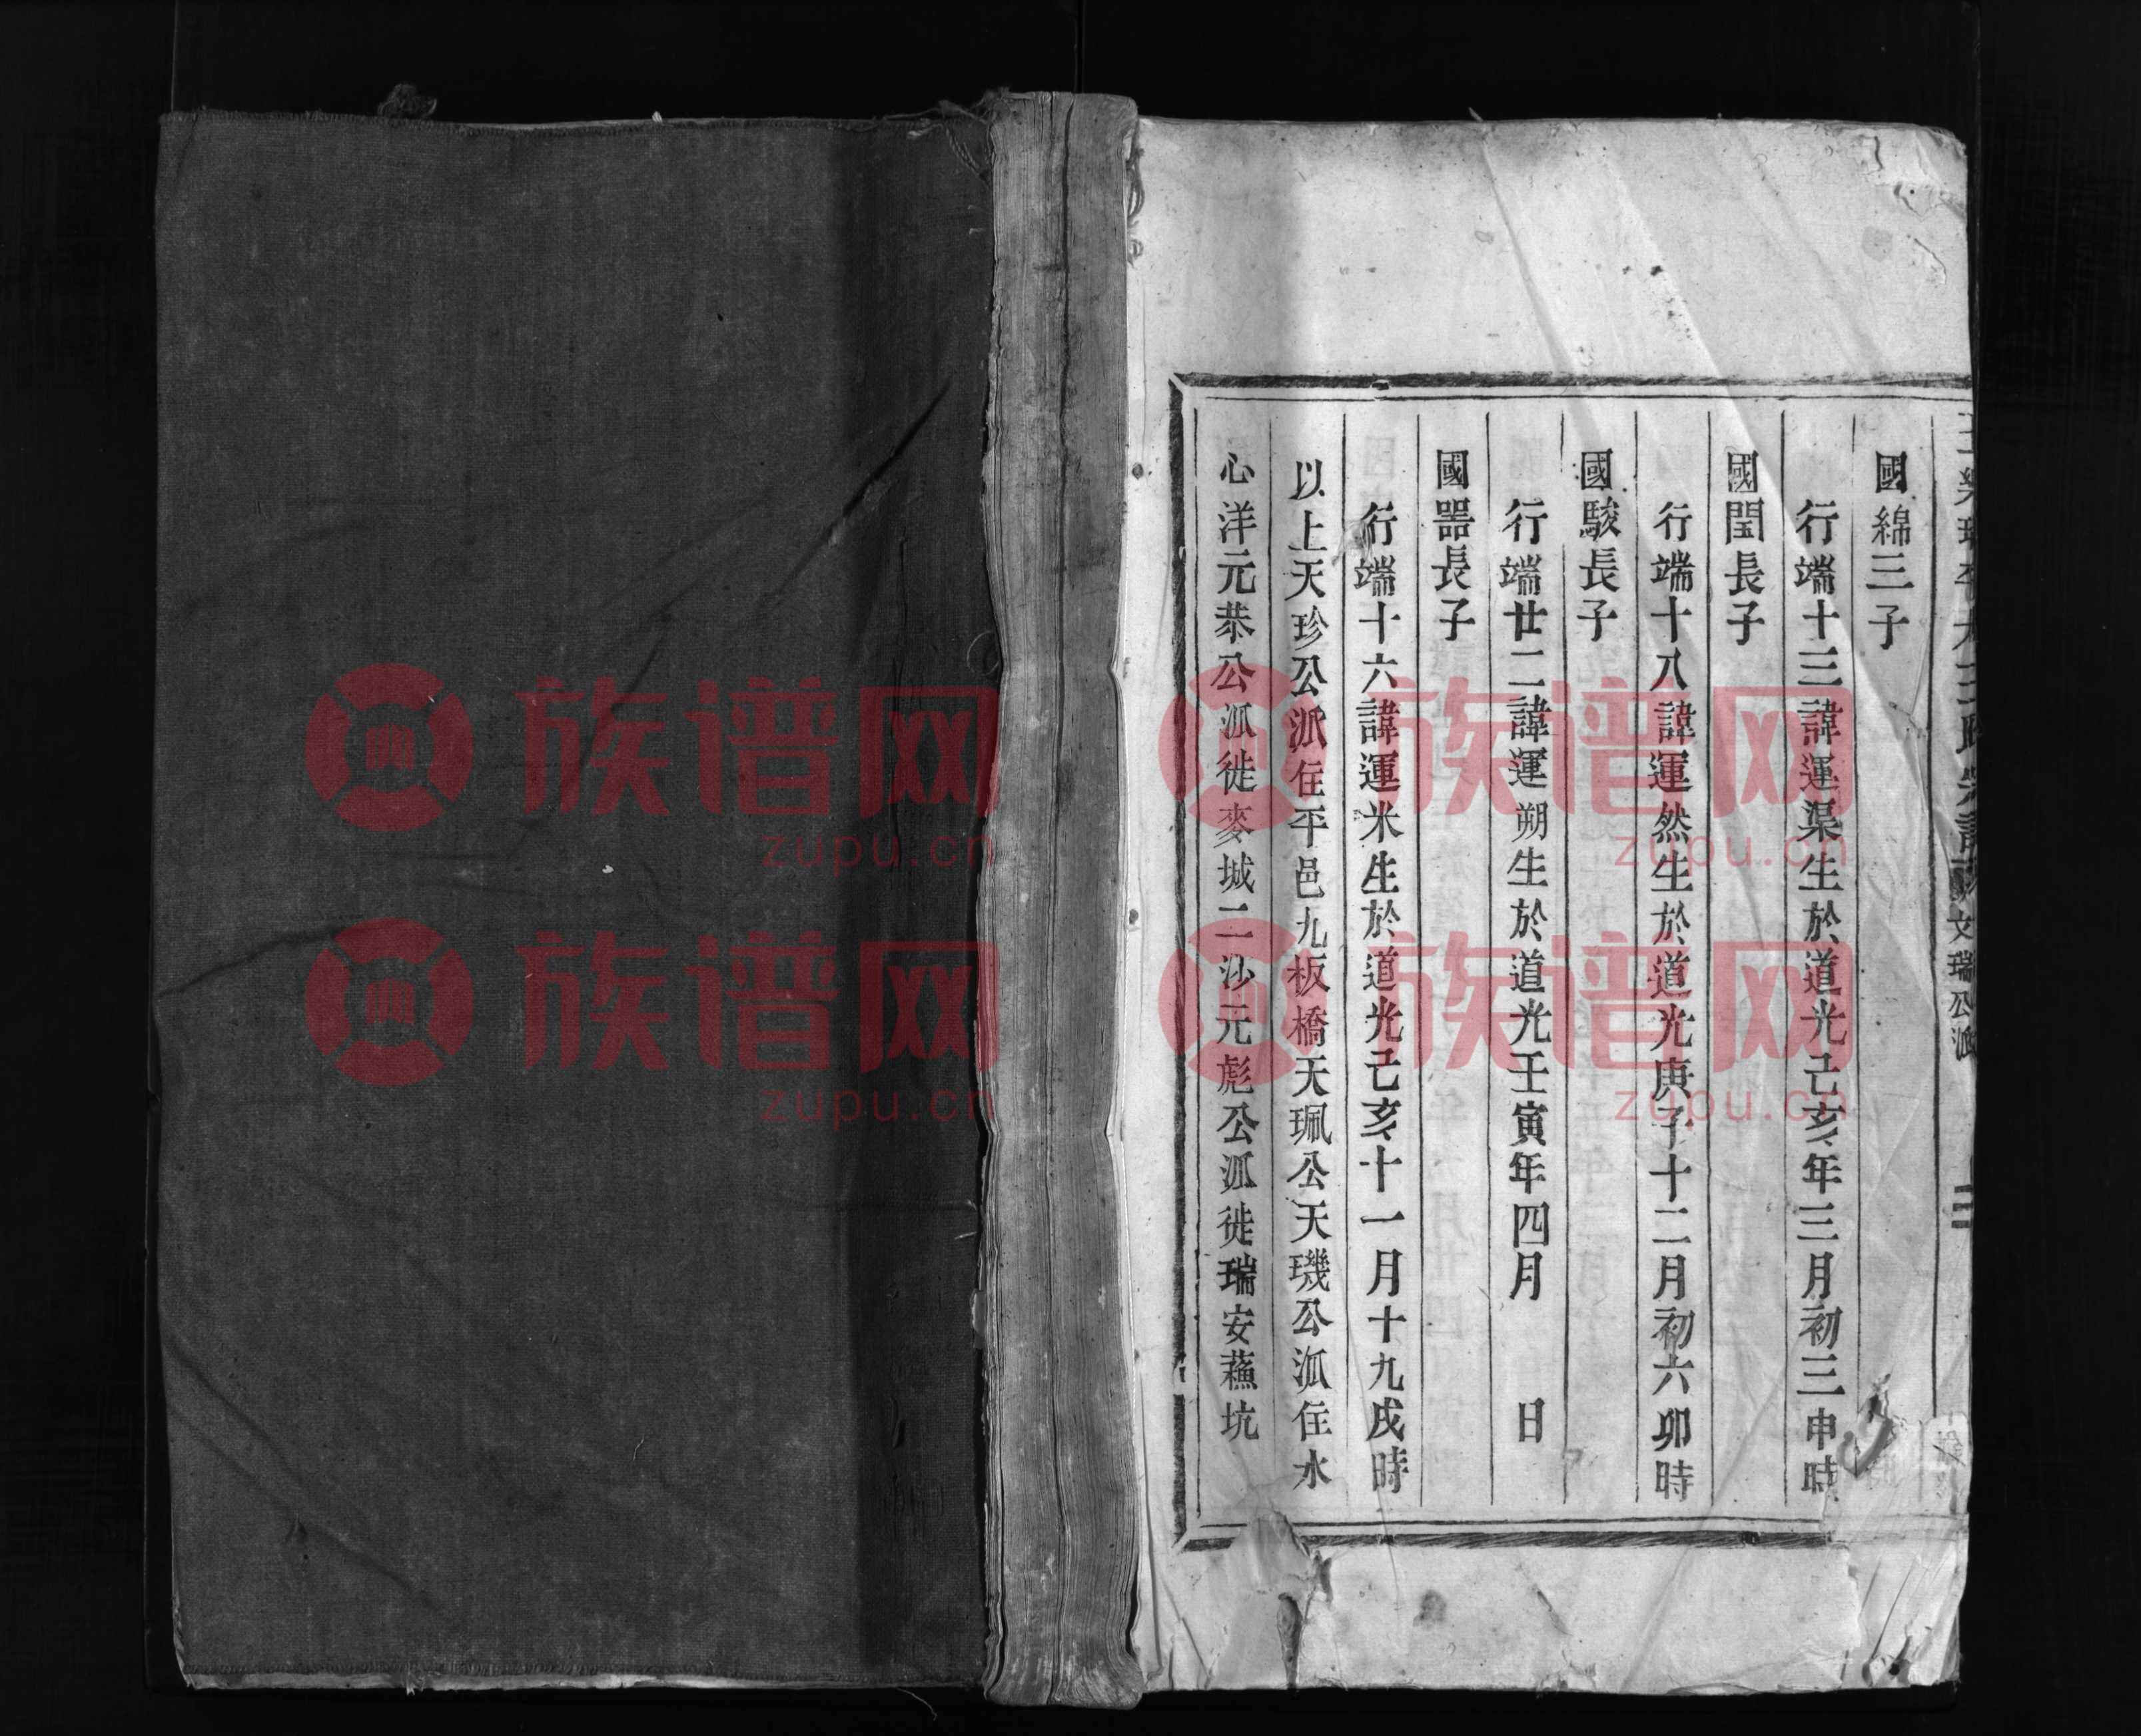 氏宗譜 文瑞公派
二
國綿三子
行端十三諱運渠生於道光己亥年三月初三申時
國閏長子
行端十八諱運然生於道光庚子十二月初六卯時
國駿長子
行端廿二諱運朔生於道光壬寅年四月 日
國器長子
行端十六諱運米生於道光己亥十一月十九戌時
以上天珍公派住平邑九板橋天珮公天璣公派住水
心洋元恭公派徙麥城二沙元彪公派徙瑞安蘓坑
族谱网
zupu.cn
族谱网
zupu.cn
族谱网
zupu.cn
族谱网
zupu.cn